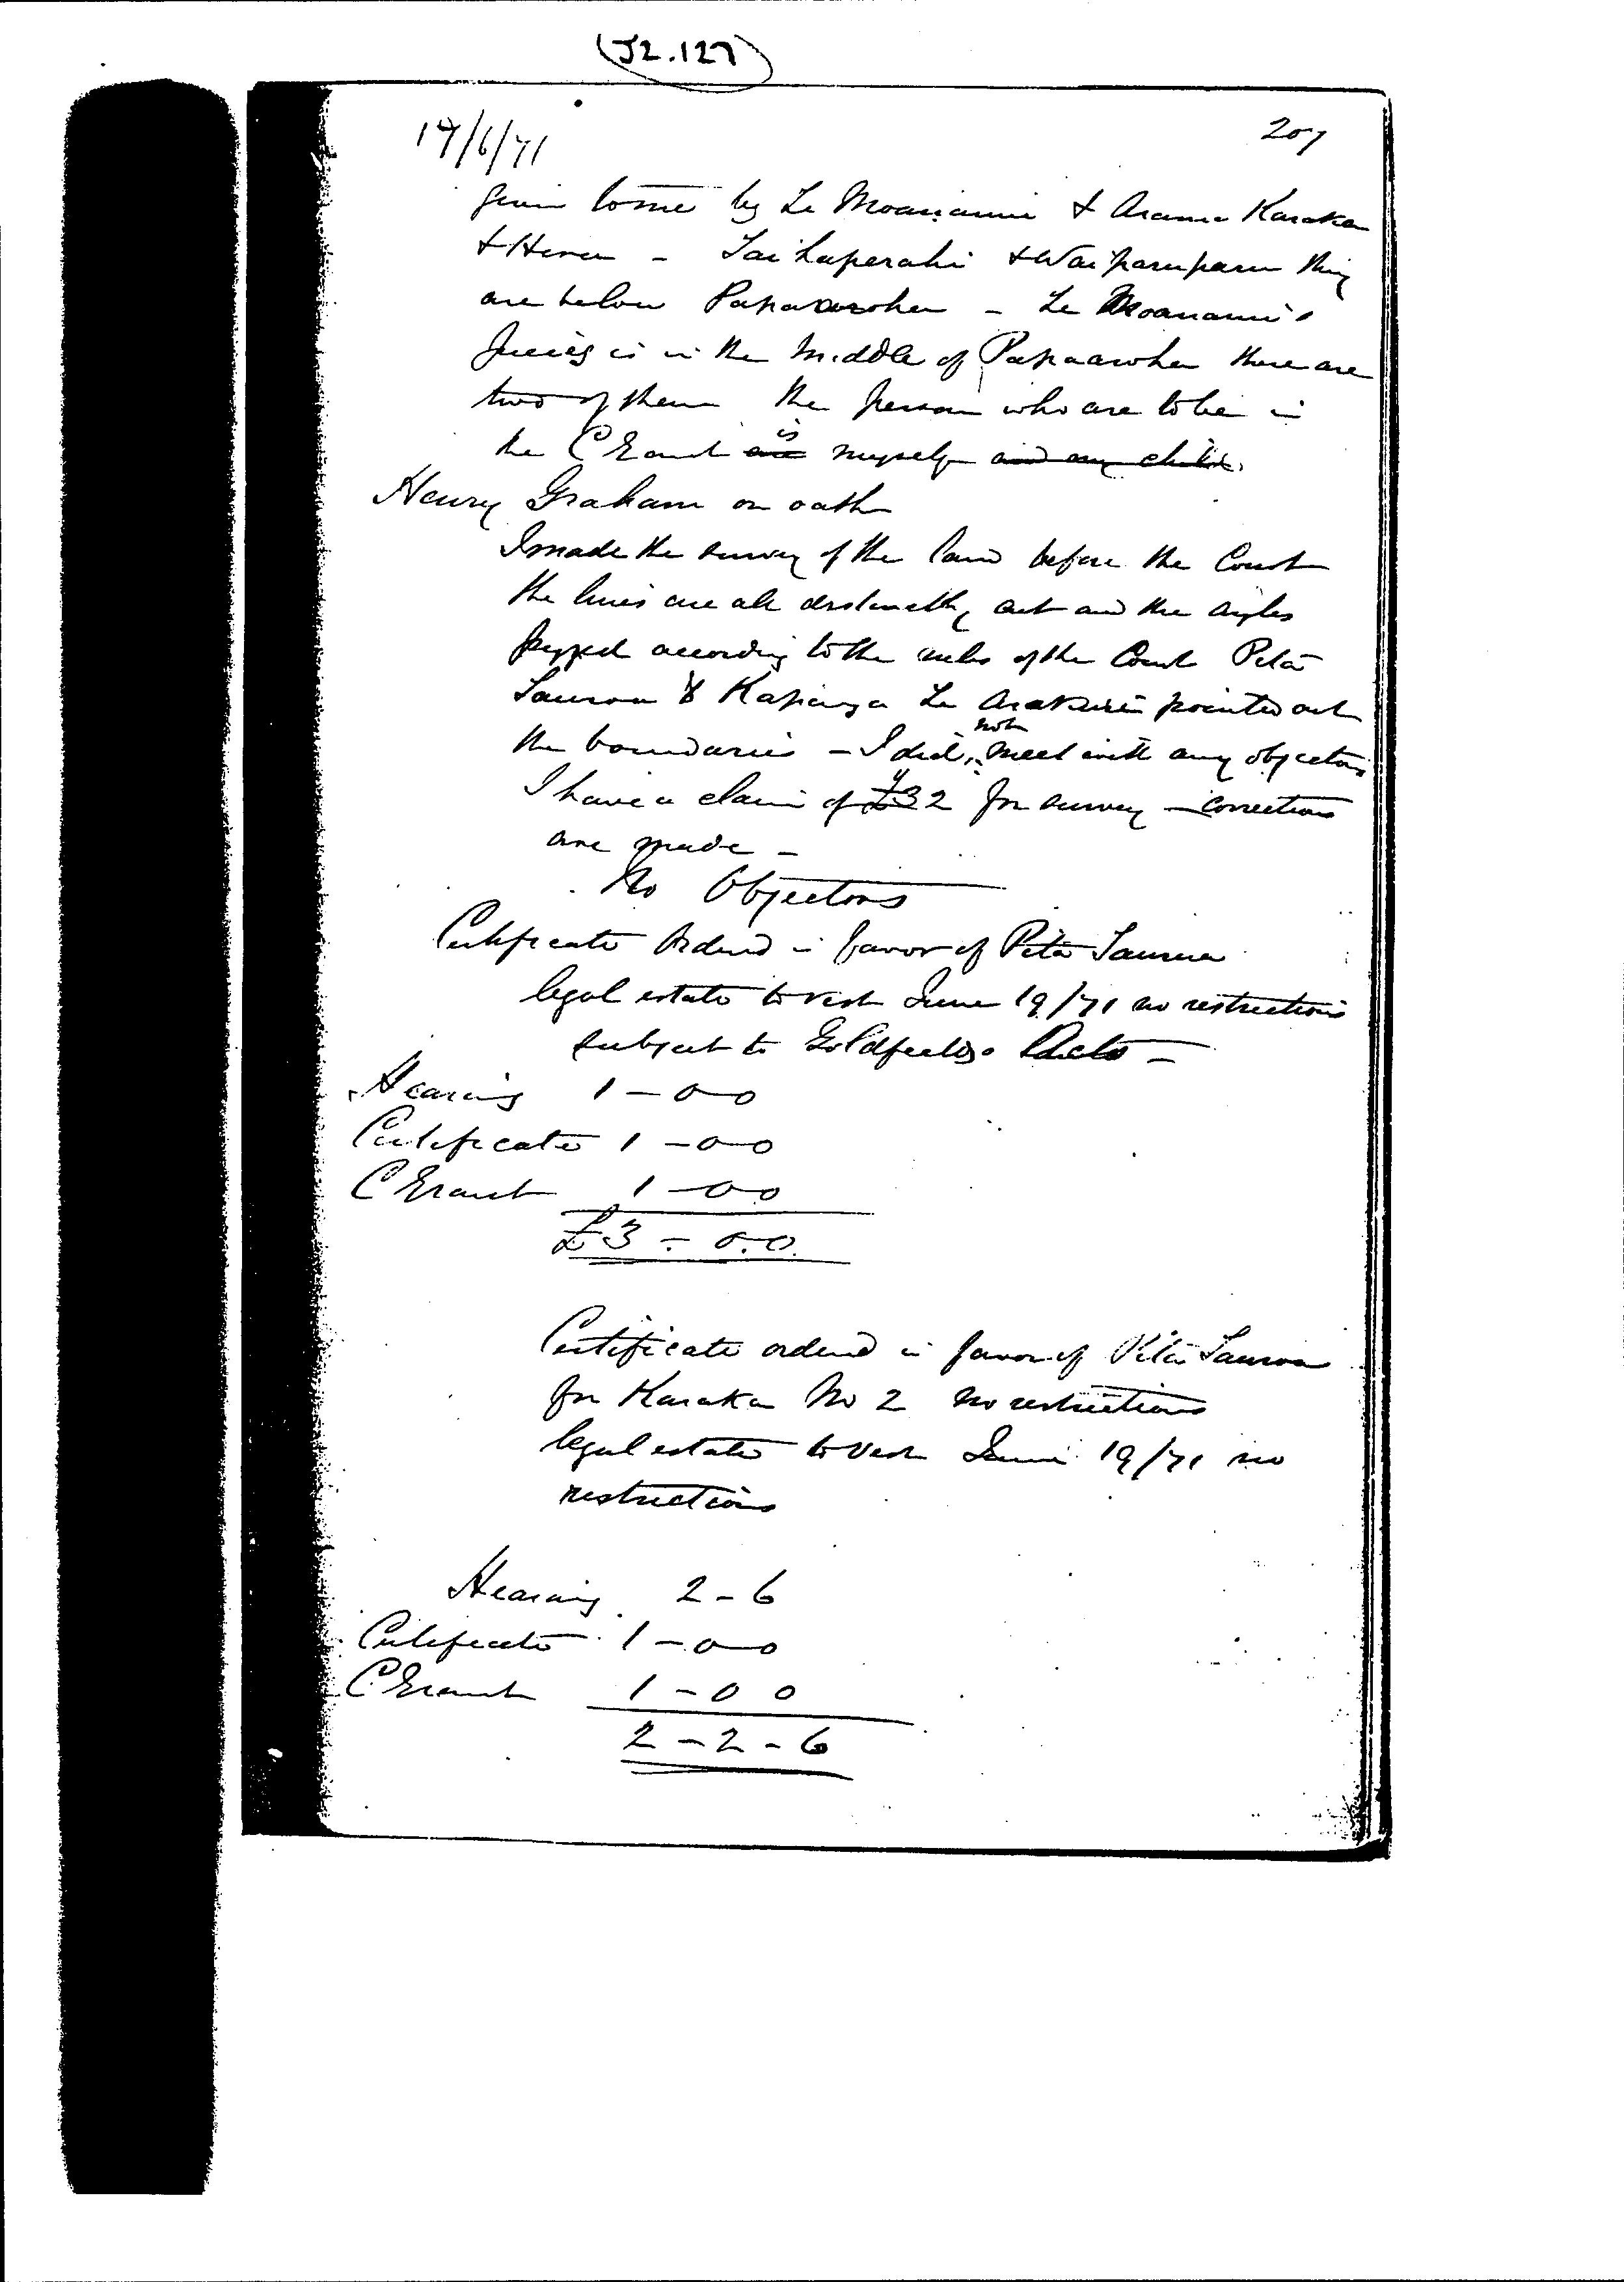 (J2.127)
19/6/71
207
given to me by Te Moananui & Arama Karaka
& Hera - Taikaperahi & Waiparuparu they
are below Papaaroha - Te Moananui's
piece is in the middle of Papaaroha there are
two of them the person who are to be in
the C Grant are is myself and my child.
Henry Graham on oath
I made the survey of the land before the Court
the lines are all distinctly cut and the angles
pegged according to the rules of the Court Pita
Taurua & Kapanga Te Arakuri pointed out
the boundaries - I did not meet with any objectors
I have a claim of for survey - corrections
are made -
No Objectors
Certificate Ordered in favor of Pita Taurua
legal estate to vest June 19/71 no restrictions
subject to Goldfields Acts -
Hearing 1-0-0
Certificate 1-0-0
C Grant 1-0-0
£3-0.0.
Certificate ordered in favor of Pita Taurua
for Karaka No 2 no restrictions
legal estate to vest June 19/71 no
restrictions
Hearing 2-6
Certificate 1-0-0
C Grant 1-0 0
2-2-6